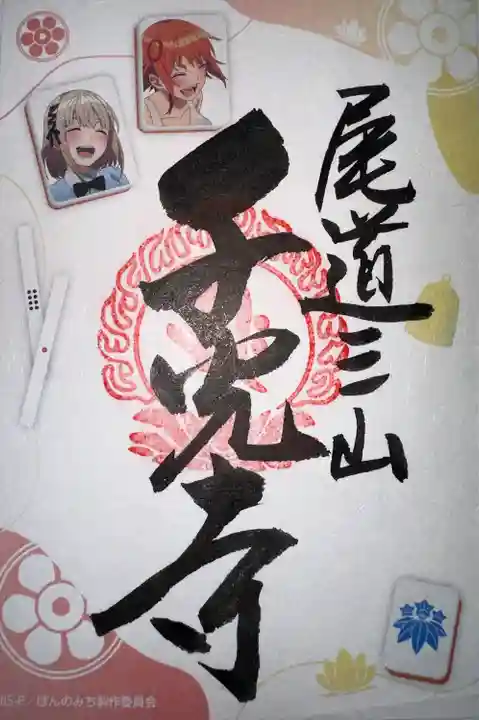 尾道三山
千光寺
IIS-P／ぽんのみち製作委員会